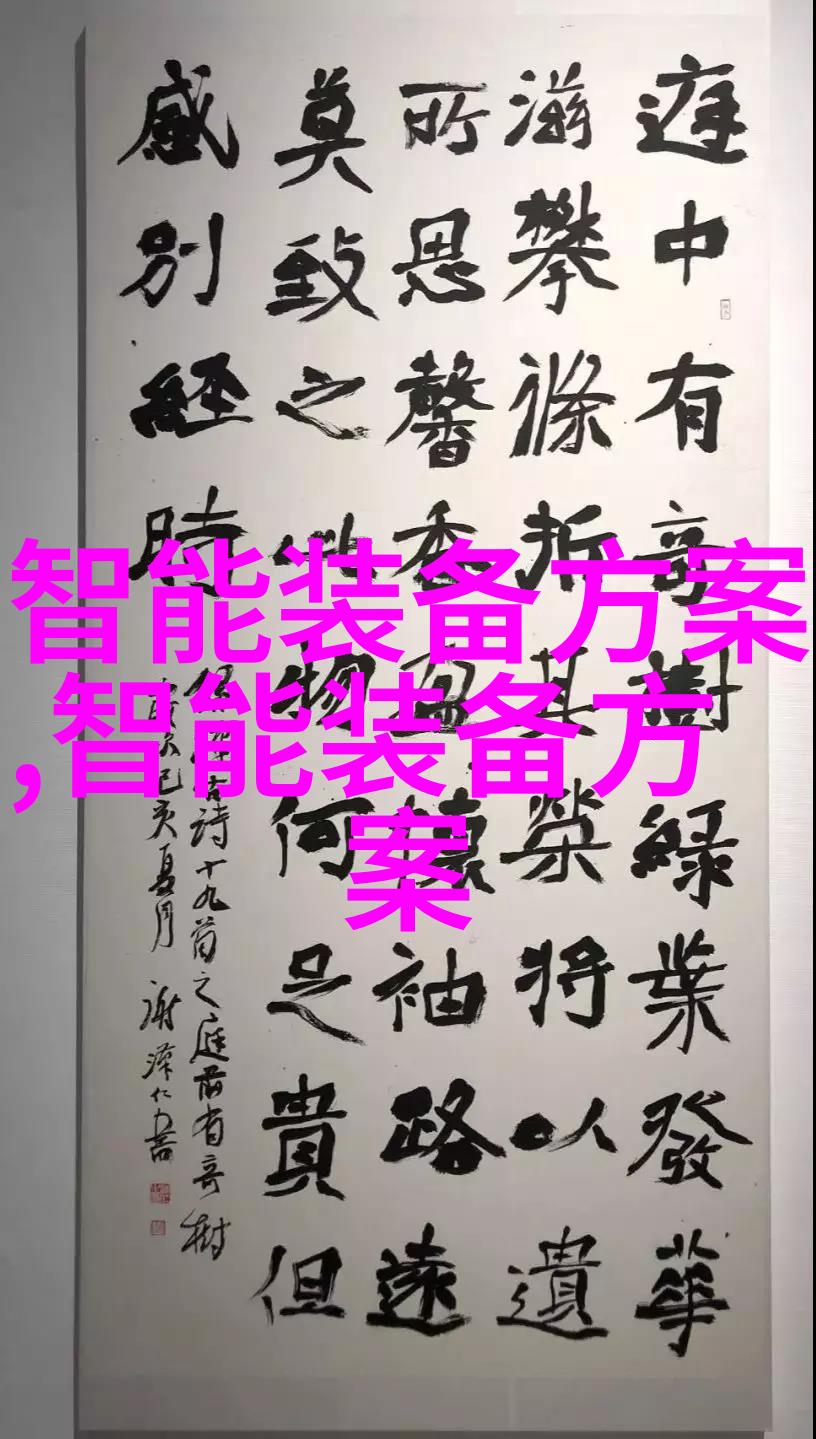 庭中有奇樹綠葉發華
滋攀條折其榮將以遺
所思馨香盈懷袖路遠
莫致之此物何足貴但
感別經時
古詩十九首之庭前有奇樹
歲次己亥夏月 謝澤仁書
智能装备方案
,智能装备方
案